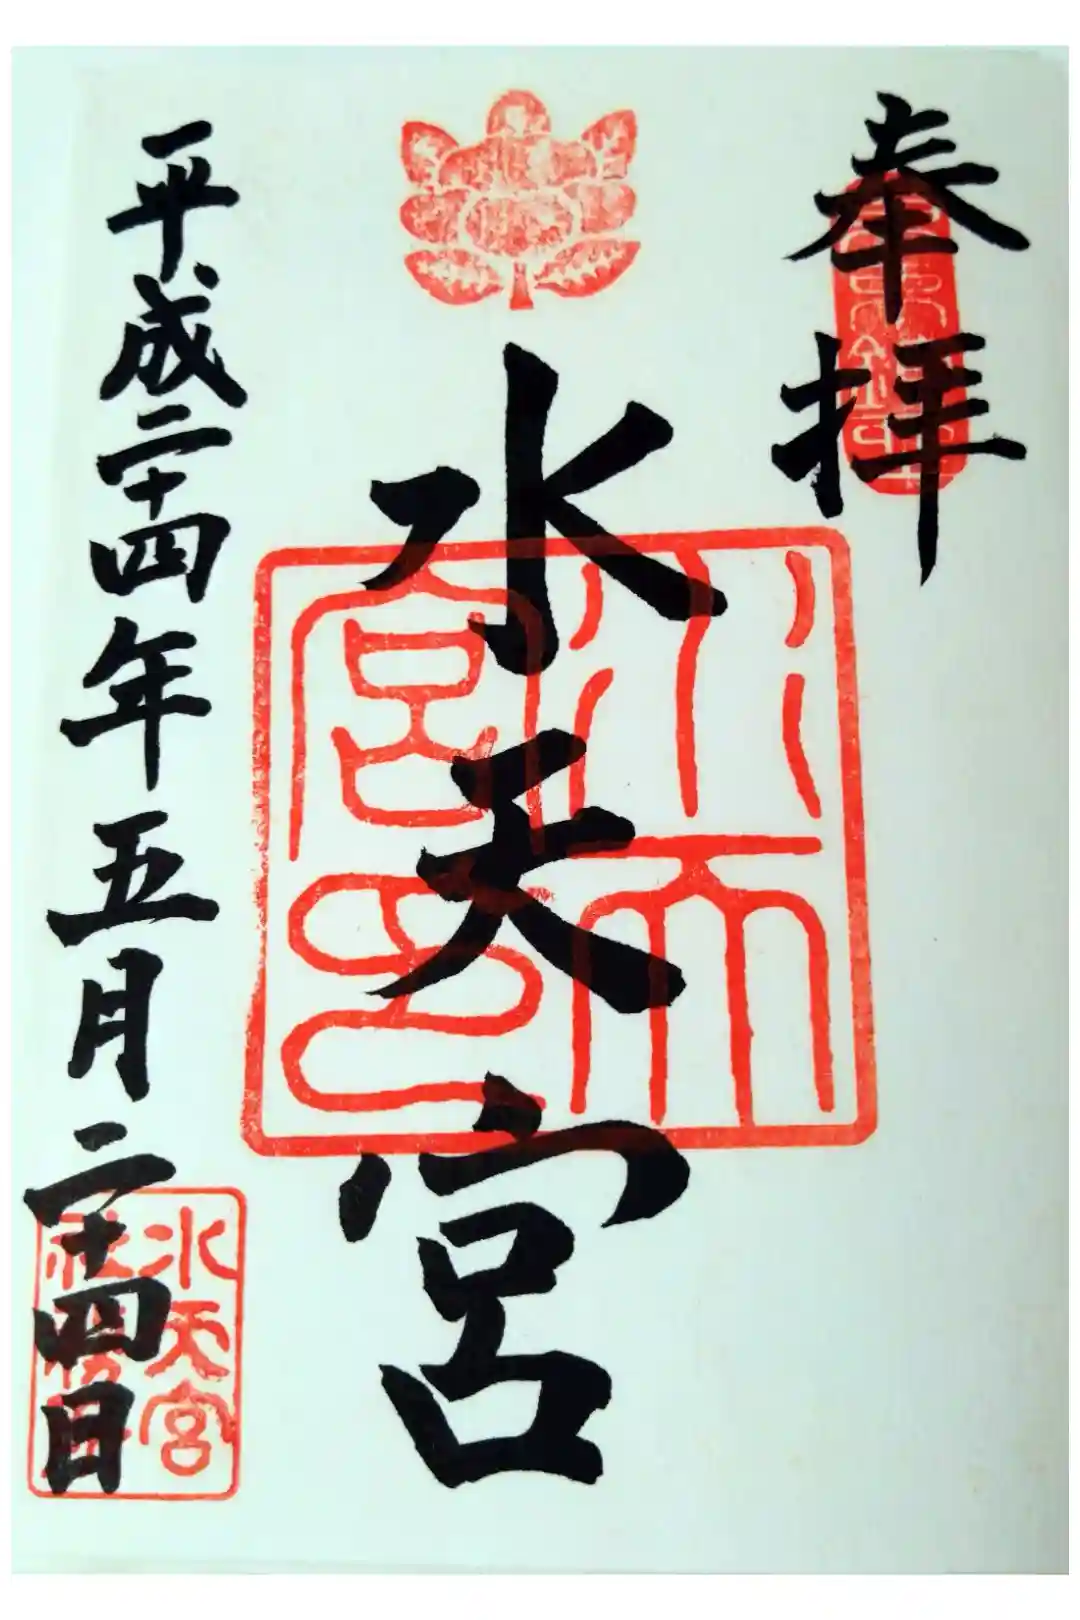 奉拝
水天宮
水天宮印
平成二十四年五月二十四日
水天宮